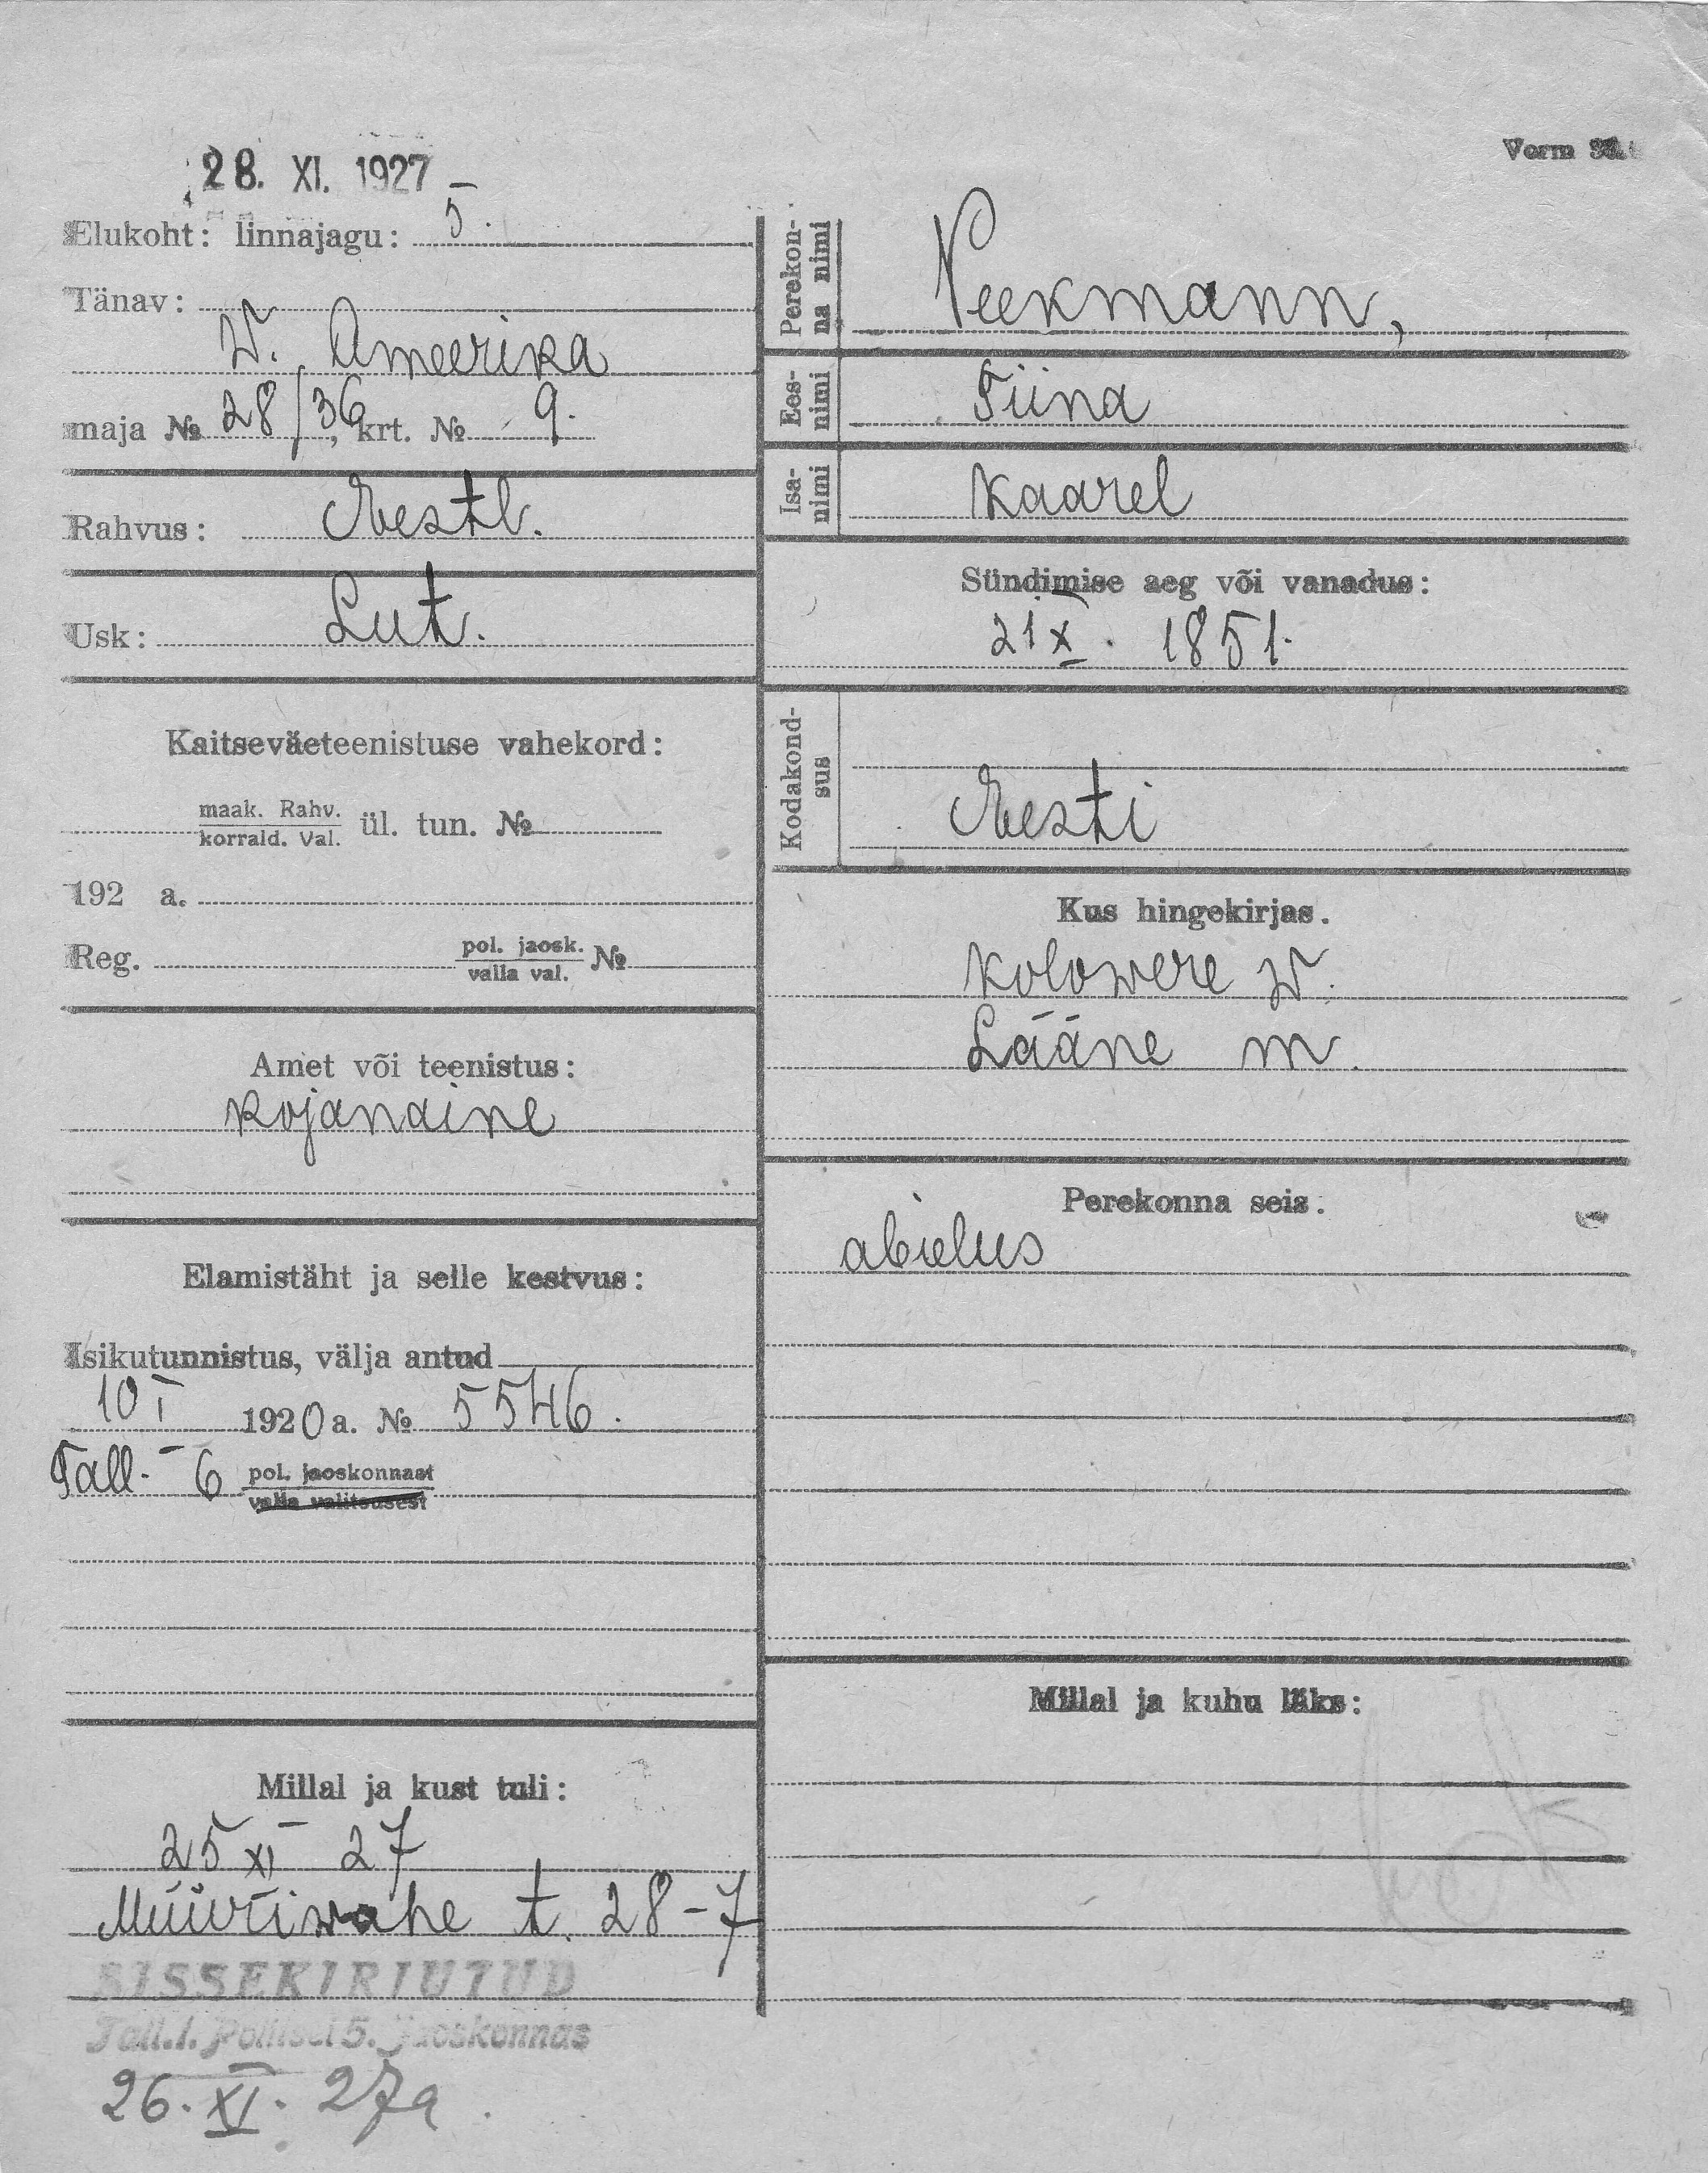 28. XI. 1927
Vorm
Elukoht: linnajagu: 5.
Tänav:
W. Ameerika
maja № 28/36, krt. № 9.
Rahvus: Eestl.
Usk: Lut.
Kaitseväeteenistuse vahekord:
maak. Rahv.
korrald. Val.
ül. tun. №
192 a.
Reg. pol. jaosk. №
valla val.
Amet või teenistus:
kojanaine
Elamistäht ja selle kestvus:
Isikutunnistus, välja antud
10 I 1920 a. № 5546.
Tall. 6 pol. jaoskonnast
valla valitsusest
Millal ja kust tuli:
25 XI 27
Müüriwahe t. 28-7
SISSEKIRJUTUD
Tall.l. Politsei 5. Jaoskonnas
26. XI. 27a.
Perekon-
na nimi
Veekmann,
Ees-
nimi
Tiina
Isa-
nimi
Kaarel
Sündimise aeg või vanadus:
21 X. 1851.
Kodakond-
sus
Eesti
Kus hingekirjas.
Kolowere w.
Lääne m.
Perekonna seis.
abielus
Millal ja kuhu läks: